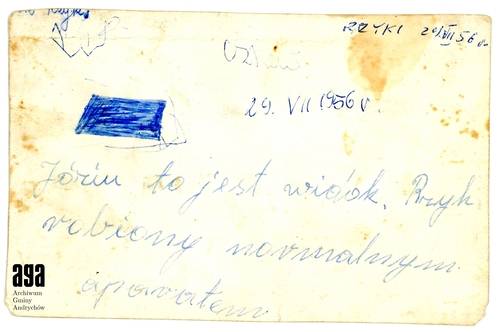 Rzyk
RZYKI 29 VII 56 r.
29. VII 1956 r.
Józiu to jest widok. Rzyk
robiony normalnym
aparatem
aga
Archiwum
Gminy
Andrychów